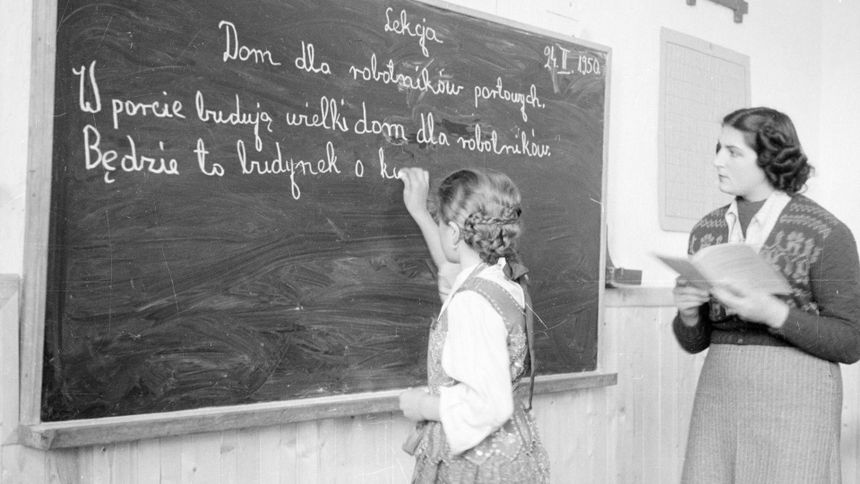 Lekcja
24. II. 1950.
Dom dla robotników portowych.
W porcie budują wielki dom dla robotników.
Będzie to budynek o ku